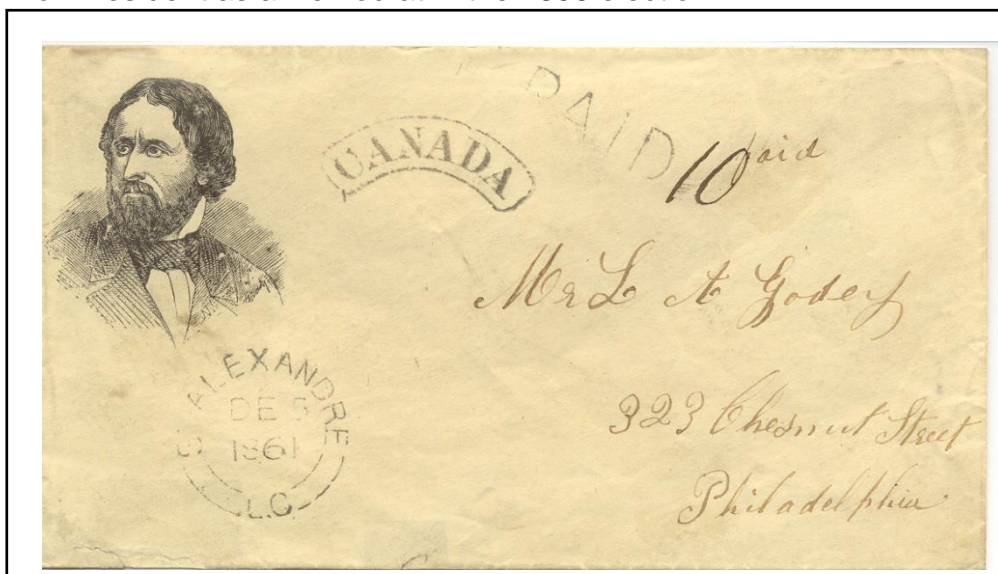 PAID
CANADA
10 Paid
Mr L A Godey
323 Chesnut Street
Philadelphia
ST ALEXANDRE
DE 5
1861
L.C.